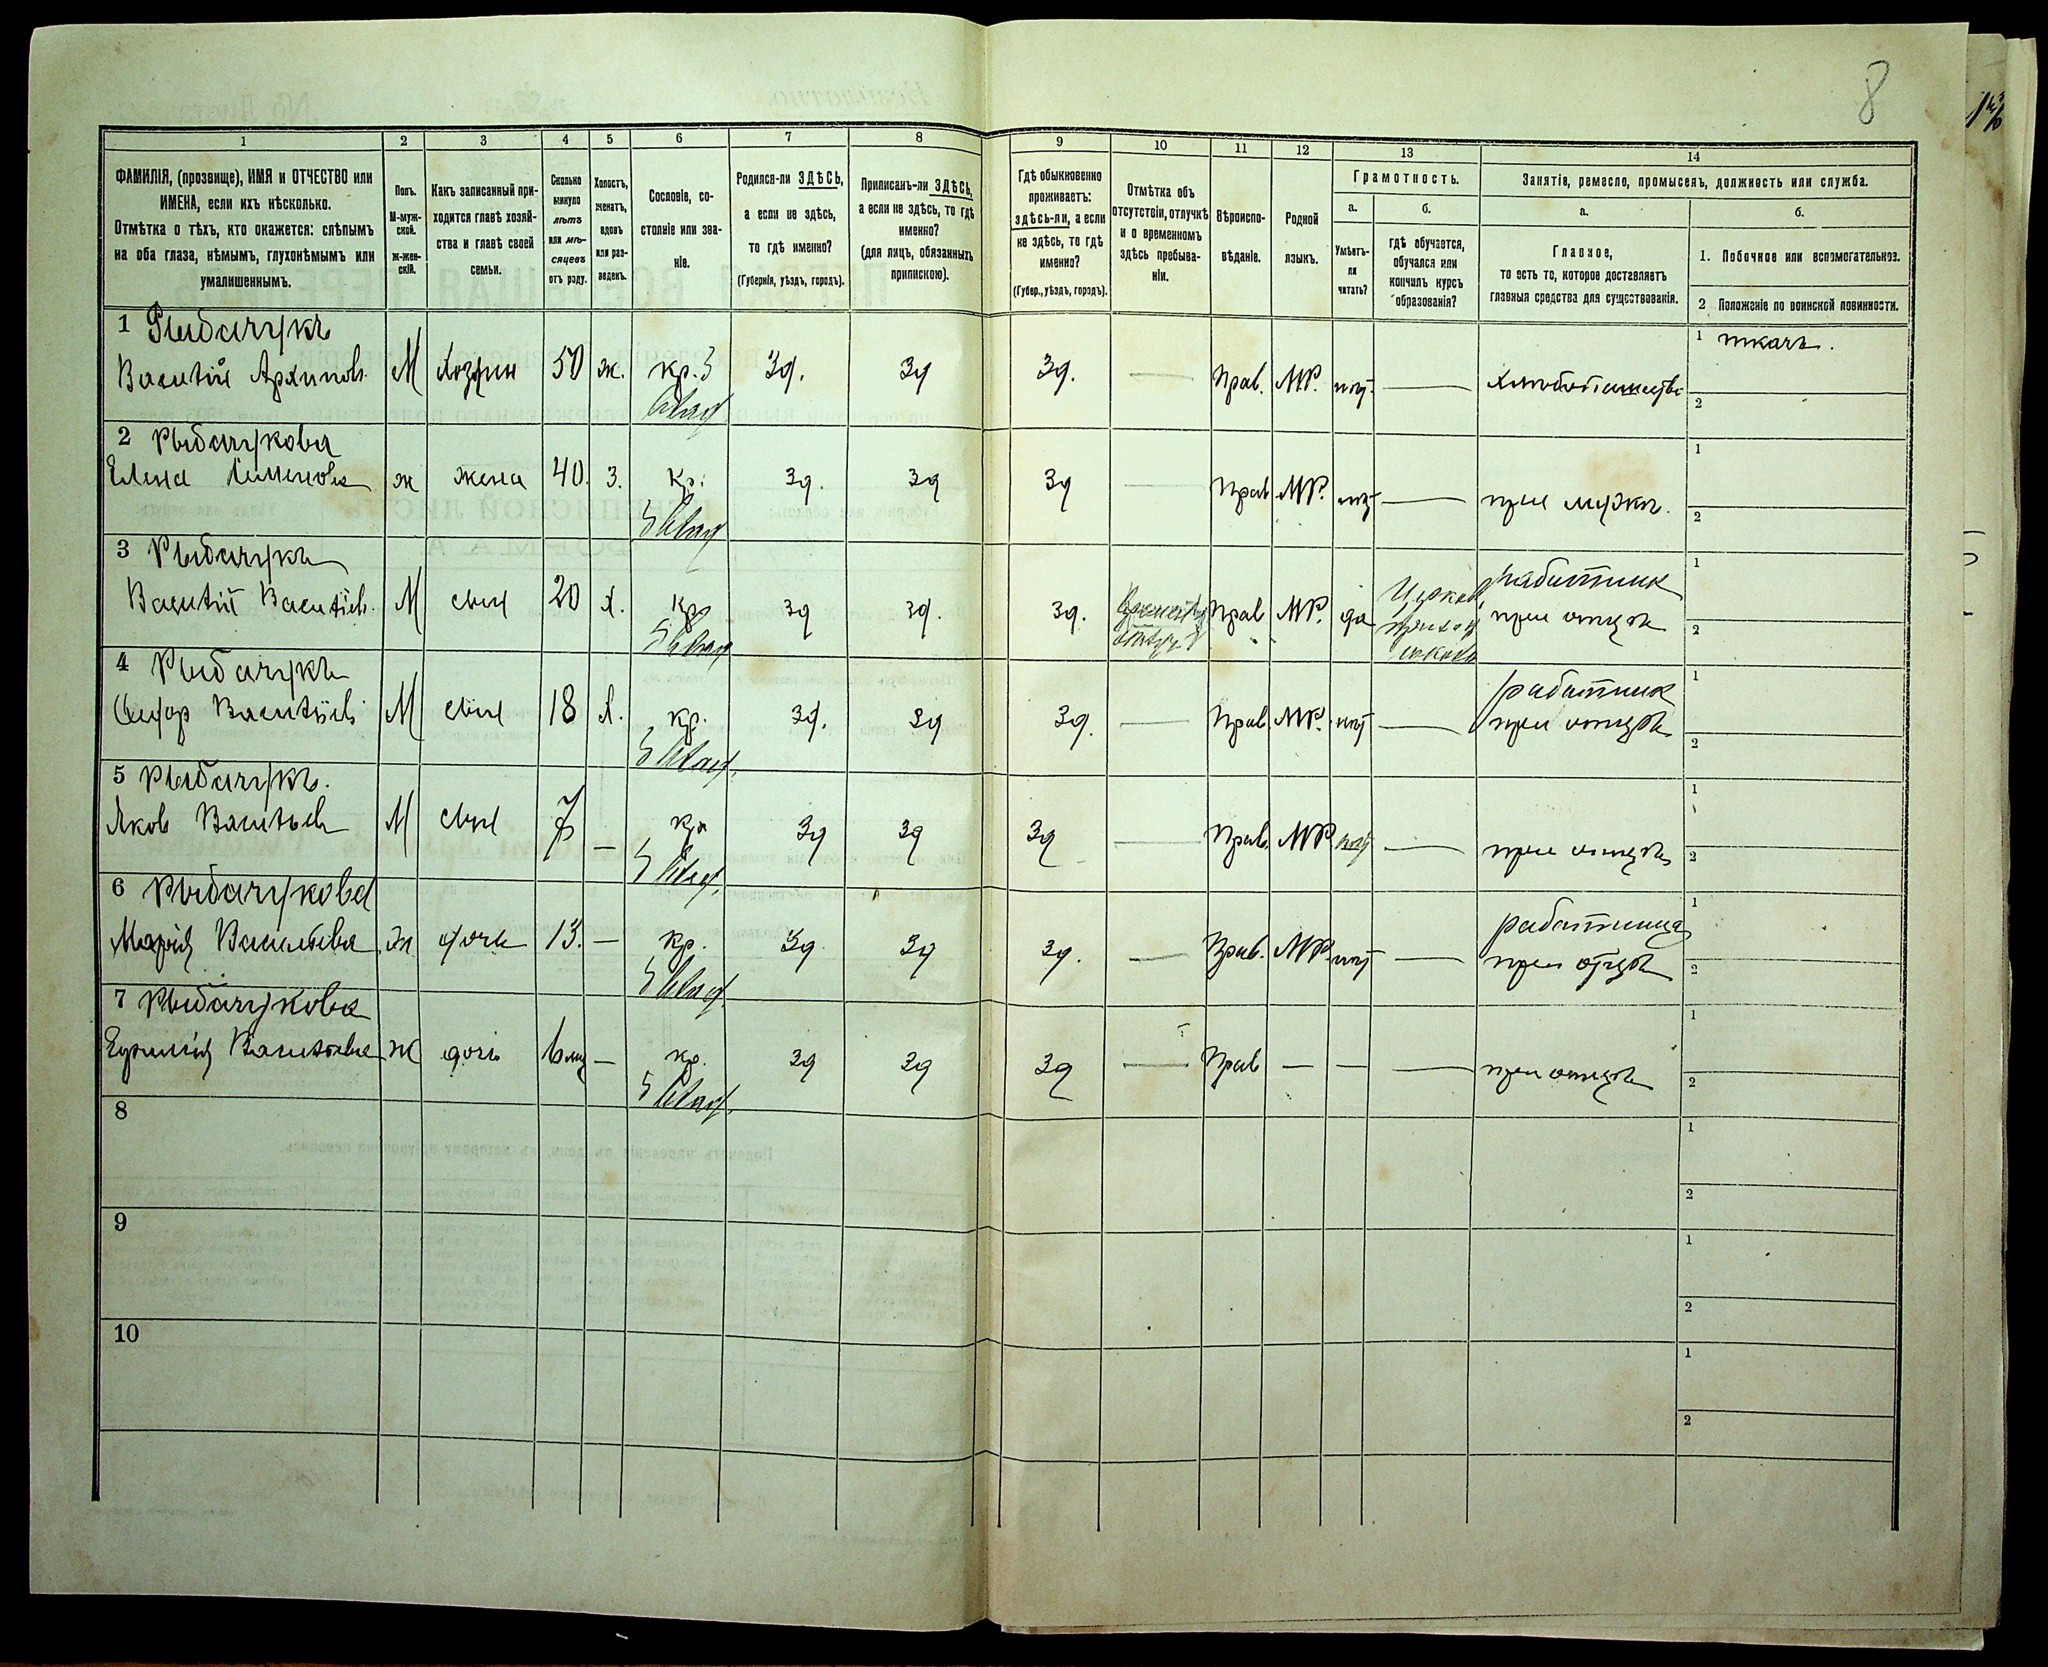 8
1 2 3 4 5 6 7 8 9 10 11 12 13 14
ФАМИЛІЯ, (прозвище), ИМЯ и ОТЧЕСТВО или
ИМЕНА, если ихъ нѣсколько.
Отмѣтка о тѣхъ, кто окажется: слѣпымъ
на оба глаза, нѣмымъ, глухонѣмымъ или
умалишеннымъ.
Полъ.
М-муж-
ской.
Ж-жен-
скій.
Какъ записанный при-
ходится главѣ хозяй-
ства и главѣ своей
семьи.
Сколько
минуло
лѣтъ
или мѣ-
сяцевъ
отъ роду.
Холостъ,
женатъ,
вдовъ
или раз-
веденъ.
Сословіе, со-
стояніе или зва-
ніе.
Родился-ли ЗДѢСЬ,
а если не здѣсь,
то гдѣ именно?
(Губернія, уѣздъ, городъ).
Приписанъ-ли ЗДѢСЬ,
а если не здѣсь, то гдѣ
именно?
(для лицъ, обязанныхъ
припискою).
Гдѣ обыкновенно
проживаетъ:
здѣсь-ли, а если
не здѣсь, то гдѣ
именно?
(Губер., уѣздъ, городъ).
Отмѣтка объ
отсутствіи, отлучкѣ
и о временномъ
здѣсь пребыва-
ніи.
Вѣроиспо-
вѣданіе.
Родной
языкъ.
Грамотность.
а.
Умѣетъ-
ли
читать?
б.
гдѣ обучается,
обучался или
кончилъ курсъ
образованія?
Занятіе, ремесло, промыселъ, должность или служба.
а.
Главное,
то есть то, которое доставляетъ
главныя средства для существованія.
б.
1. Побочное или вспомогательное.
2 Положеніе по воинской повинности.
1 Рыбачукъ 1 ткачъ.
Василій Архиповъ М Хозяин 50 ж. кр. Зд. Зд Зд. — Прав. МР. нѣт — 2
2 Рыбачукова 1
Елена ж жена 40. З. Кр. Зд. Зд Зд — Прав МР. нѣт — при мужѣ. 2
3 Рыбачукъ 1 работник
Василій Васильев. М сын 20 Х. кр Зд Зд. Зд. Прав МР. да при отцѣ 2
школа
4 Рыбачукъ 1 работник
Васильев М сын 18 Х. кр. Зд. Зд Зд. — Прав. МР. нѣт — при отцѣ 2
5 Рыбачукъ. 1
Яков Васильев М сын 7 — кр Зд Зд Зд — Прав. МР нѣт — при отцѣ 2
6 Рыбачукова 1 работница
Марія Васильева ж дочь 13. — кр. Зд Зд Зд. — Прав. МР. нѣт — при отцѣ 2
7 Рыбачукова 1
Васильева ж дочь — кр. Зд Зд Зд — Прав — — — при отцѣ 2
8 1
2
9 1
2
10 1
2